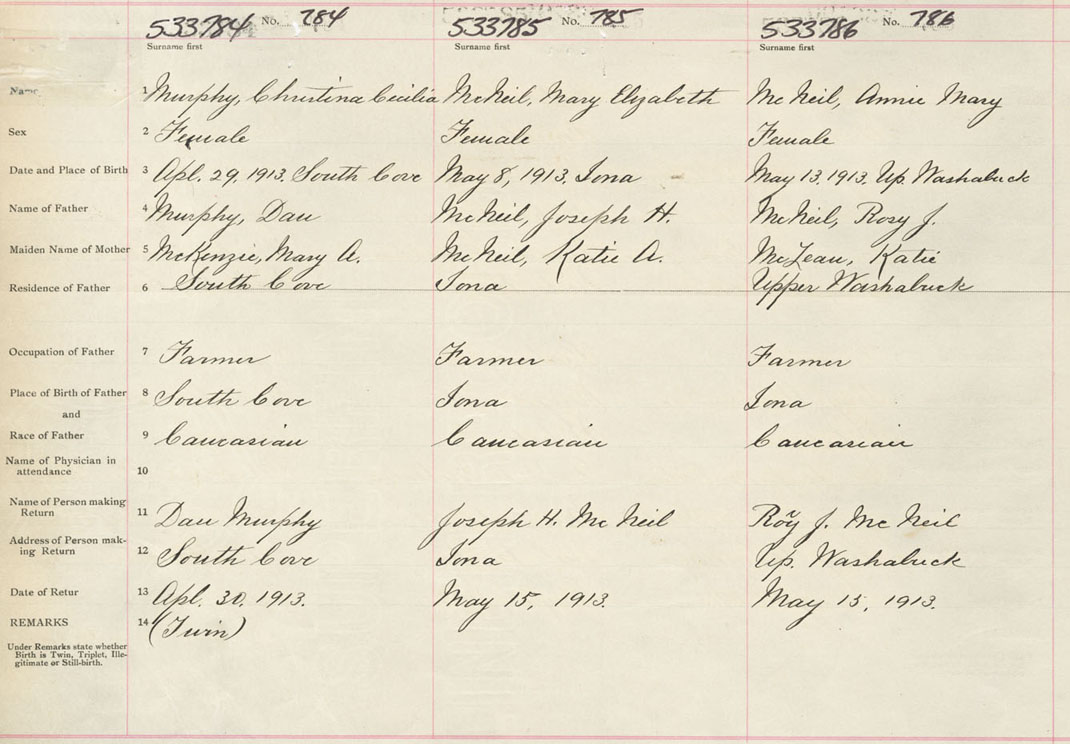 533784 No. 784 533785 No. 785 533786 No. 786
Surname first Surname first Surname first
Name 1 Murphy, Christina Cecilia McNeil, Mary Elizabeth McNeil, Annie Mary
Sex 2 Female Female Female
Date and Place of Birth 3 Apl. 29, 1913. South Cove May 8, 1913. Iona May 13. 1913. Up. Washabuck
Name of Father 4 Murphy, Dan McNeil, Joseph H. McNeil, Rory J.
Maiden Name of Mother 5 McKenzie, Mary A. McNeil, Katie A. McLean, Katie
Residence of Father 6 South Cove Iona Upper Washabuck
Occupation of Father 7 Farmer Farmer Farmer
Place of Birth of Father 8 South Cove Iona Iona
and
Race of Father 9 Caucasian Caucasian Caucasian
Name of Physician in
attendance 10
Name of Person making
Return 11 Dan Murphy Joseph H. McNeil Roy J. McNeil
Address of Person mak-
ing Return 12 South Cove Iona Up. Washabuck
Date of Retur 13 Apl. 30, 1913. May 15, 1913. May 15, 1913.
REMARKS 14 (Twin)
Under Remarks state whether
Birth is Twin, Triplet, Ille-
gitimate or Still-birth.